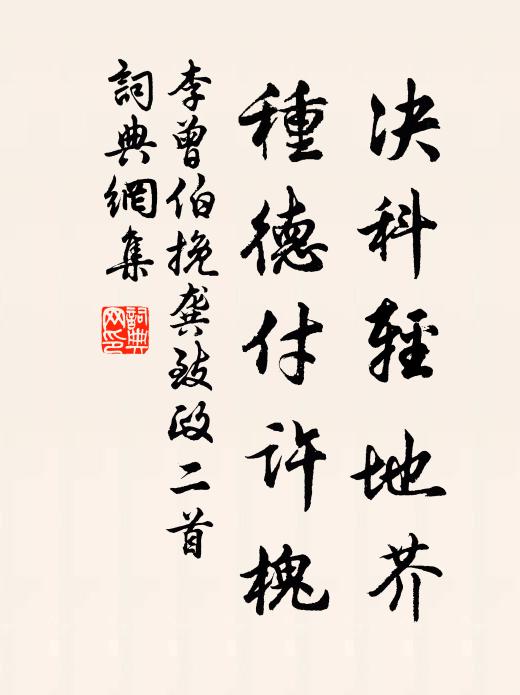 决科輕地芥
種德付許槐
李曾伯挽龔致政二首
詞典網集
詞典网印